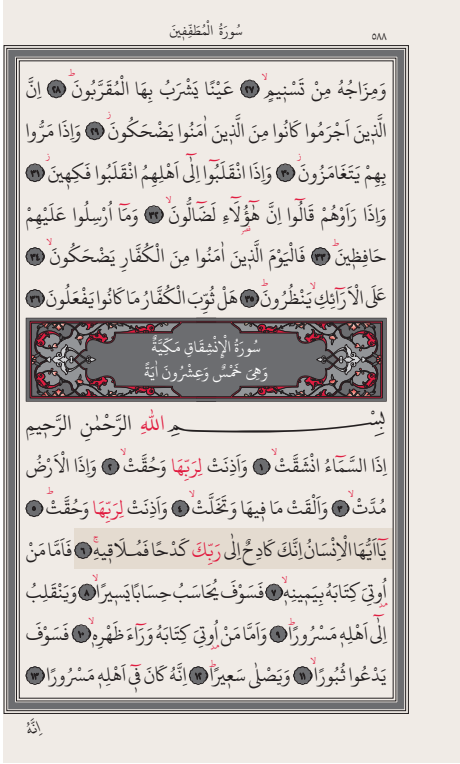 سُورَةُ الْمُطَفِّفِينَ
٥٨٨
وَمِزَاجُهُ مِنْ تَسْنِيمٍۙ ﴿٢٧﴾ عَيْنًا يَشْرَبُ بِهَا الْمُقَرَّبُونَۜ ﴿٢٨﴾ اِنَّ
الَّذِينَ اَجْرَمُوا كَانُوا مِنَ الَّذِينَ اٰمَنُوا يَضْحَكُونَۘ ﴿٢٩﴾ وَاِذَا مَرُّوا
بِهِمْ يَتَغَامَزُونَۘ ﴿٣٠﴾ وَاِذَا انْقَلَبُٓوا اِلٰٓى اَهْلِهِمُ انْقَلَبُوا فَكِهِينَۘ ﴿٣١﴾
وَاِذَا رَاَوْهُمْ قَالُٓوا اِنَّ هٰٓؤُ۬لَٓاءِ لَضَٓالُّونَۙ ﴿٣٢﴾ وَمَٓا اُرْسِلُوا عَلَيْهِمْ
حَافِظِينَۜ ﴿٣٣﴾ فَالْيَوْمَ الَّذِينَ اٰمَنُوا مِنَ الْكُفَّارِ يَضْحَكُونَۙ ﴿٣٤﴾
عَلَى الْاَرَٓائِكِۙ يَنْظُرُونَۜ ﴿٣٥﴾ هَلْ ثُوِّبَ الْكُفَّارُ مَا كَانُوا يَفْعَلُونَ ﴿٣٦﴾
سُورَةُ الْاِنْشِقَاقِ مَكِّيَّةٌ
وَهِيَ خَمْسٌ وَعِشْرُونَ اٰيَةً
بِسْمِ اللّٰهِ الرَّحْمٰنِ الرَّحِيمِ
اِذَا السَّمَٓاءُ انْشَقَّتْۙ ﴿١﴾ وَاَذِنَتْ لِرَبِّهَا وَحُقَّتْۙ ﴿٢﴾ وَاِذَا الْاَرْضُ
مُدَّتْۙ ﴿٣﴾ وَاَلْقَتْ مَا فِيهَا وَتَخَلَّتْۙ ﴿٤﴾ وَاَذِنَتْ لِرَبِّهَا وَحُقَّتْۜ ﴿٥﴾
يَٓا اَيُّهَا الْاِنْسَانُ اِنَّكَ كَادِحٌ اِلٰى رَبِّكَ كَدْحًا فَمُلَاقِيهِۚ ﴿٦﴾ فَاَمَّا مَنْ
اُو۫تِيَ كِتَابَهُ بِيَمِينِهِۙ ﴿٧﴾ فَسَوْفَ يُحَاسَبُ حِسَابًا يَسِيرًاۙ ﴿٨﴾ وَيَنْقَلِبُ
اِلٰٓى اَهْلِهِ مَسْرُورًاۜ ﴿٩﴾ وَاَمَّا مَنْ اُو۫تِيَ كِتَابَهُ وَرَٓاءَ ظَهْرِهِۙ ﴿١٠﴾ فَسَوْفَ
يَدْعُوا ثُبُورًاۙ ﴿١١﴾ وَيَصْلٰى سَعِيرًاۜ ﴿١٢﴾ اِنَّهُ كَانَ فِٓي اَهْلِهِ مَسْرُورًاۜ ﴿١٣﴾
اِنَّهُ